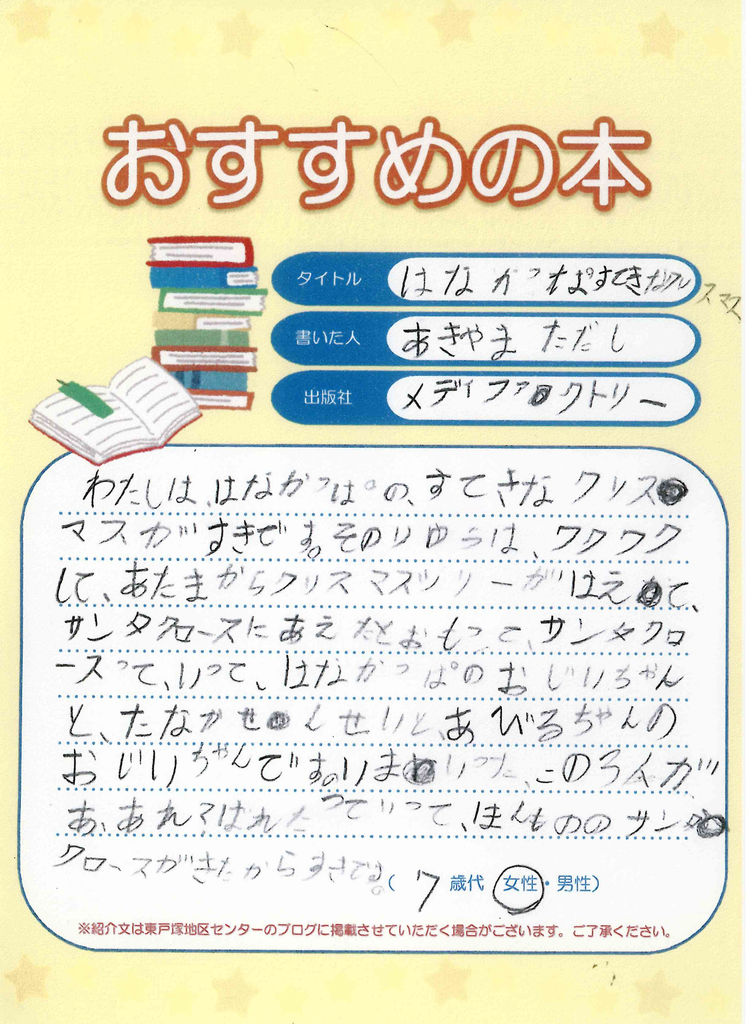 おすすめの本
タイトル はなかっぱすてきなクリスマス
書いた人 あきやま ただし
出版社 メディアファクトリー
わたしは、はなかっぱの、すてきなクリス
マスがすきです。そのりゆうは、ワクワク
して、あたまからクリスマスツリーがはえて、
サンタクロースにあえたとおもって、サンタクロ
ースって、いって、はなかっぱのおじいちゃん
と、たなかせんせいと、あびるちゃんの
おじいちゃんです。いまいった、この3人が
あ、あれ?ばれたっていって、ほんもののサンタ
クロースがきたからすきです。
(7歳代 女性・男性)
※紹介文は東戸塚地区センターのブログに掲載させていただく場合がございます。ご了承ください。